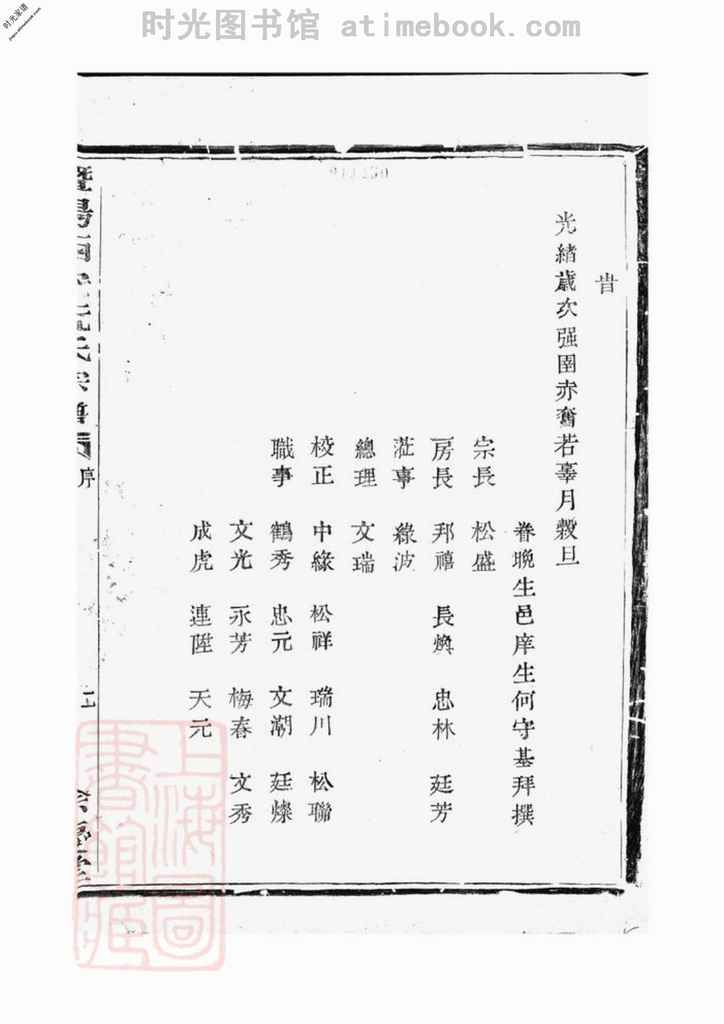 时光图书馆 atimebook.com
时光家谱
昔
光緒歲次强圉赤奮若辜月穀旦
眷晚生邑庠生何守基拜撰
宗長 松盛
房長 邦禧 長煥 忠林 廷芳
蒞事 綠波
總理 文瑞
校正 中緣 松祥 瑞川 松聯
職事 鶴秀 忠元 文潮 廷燦
文光 永芳 梅春 文秀
成虎 連陞 天元
暨陽 氏宗譜
序
上海圖書館藏